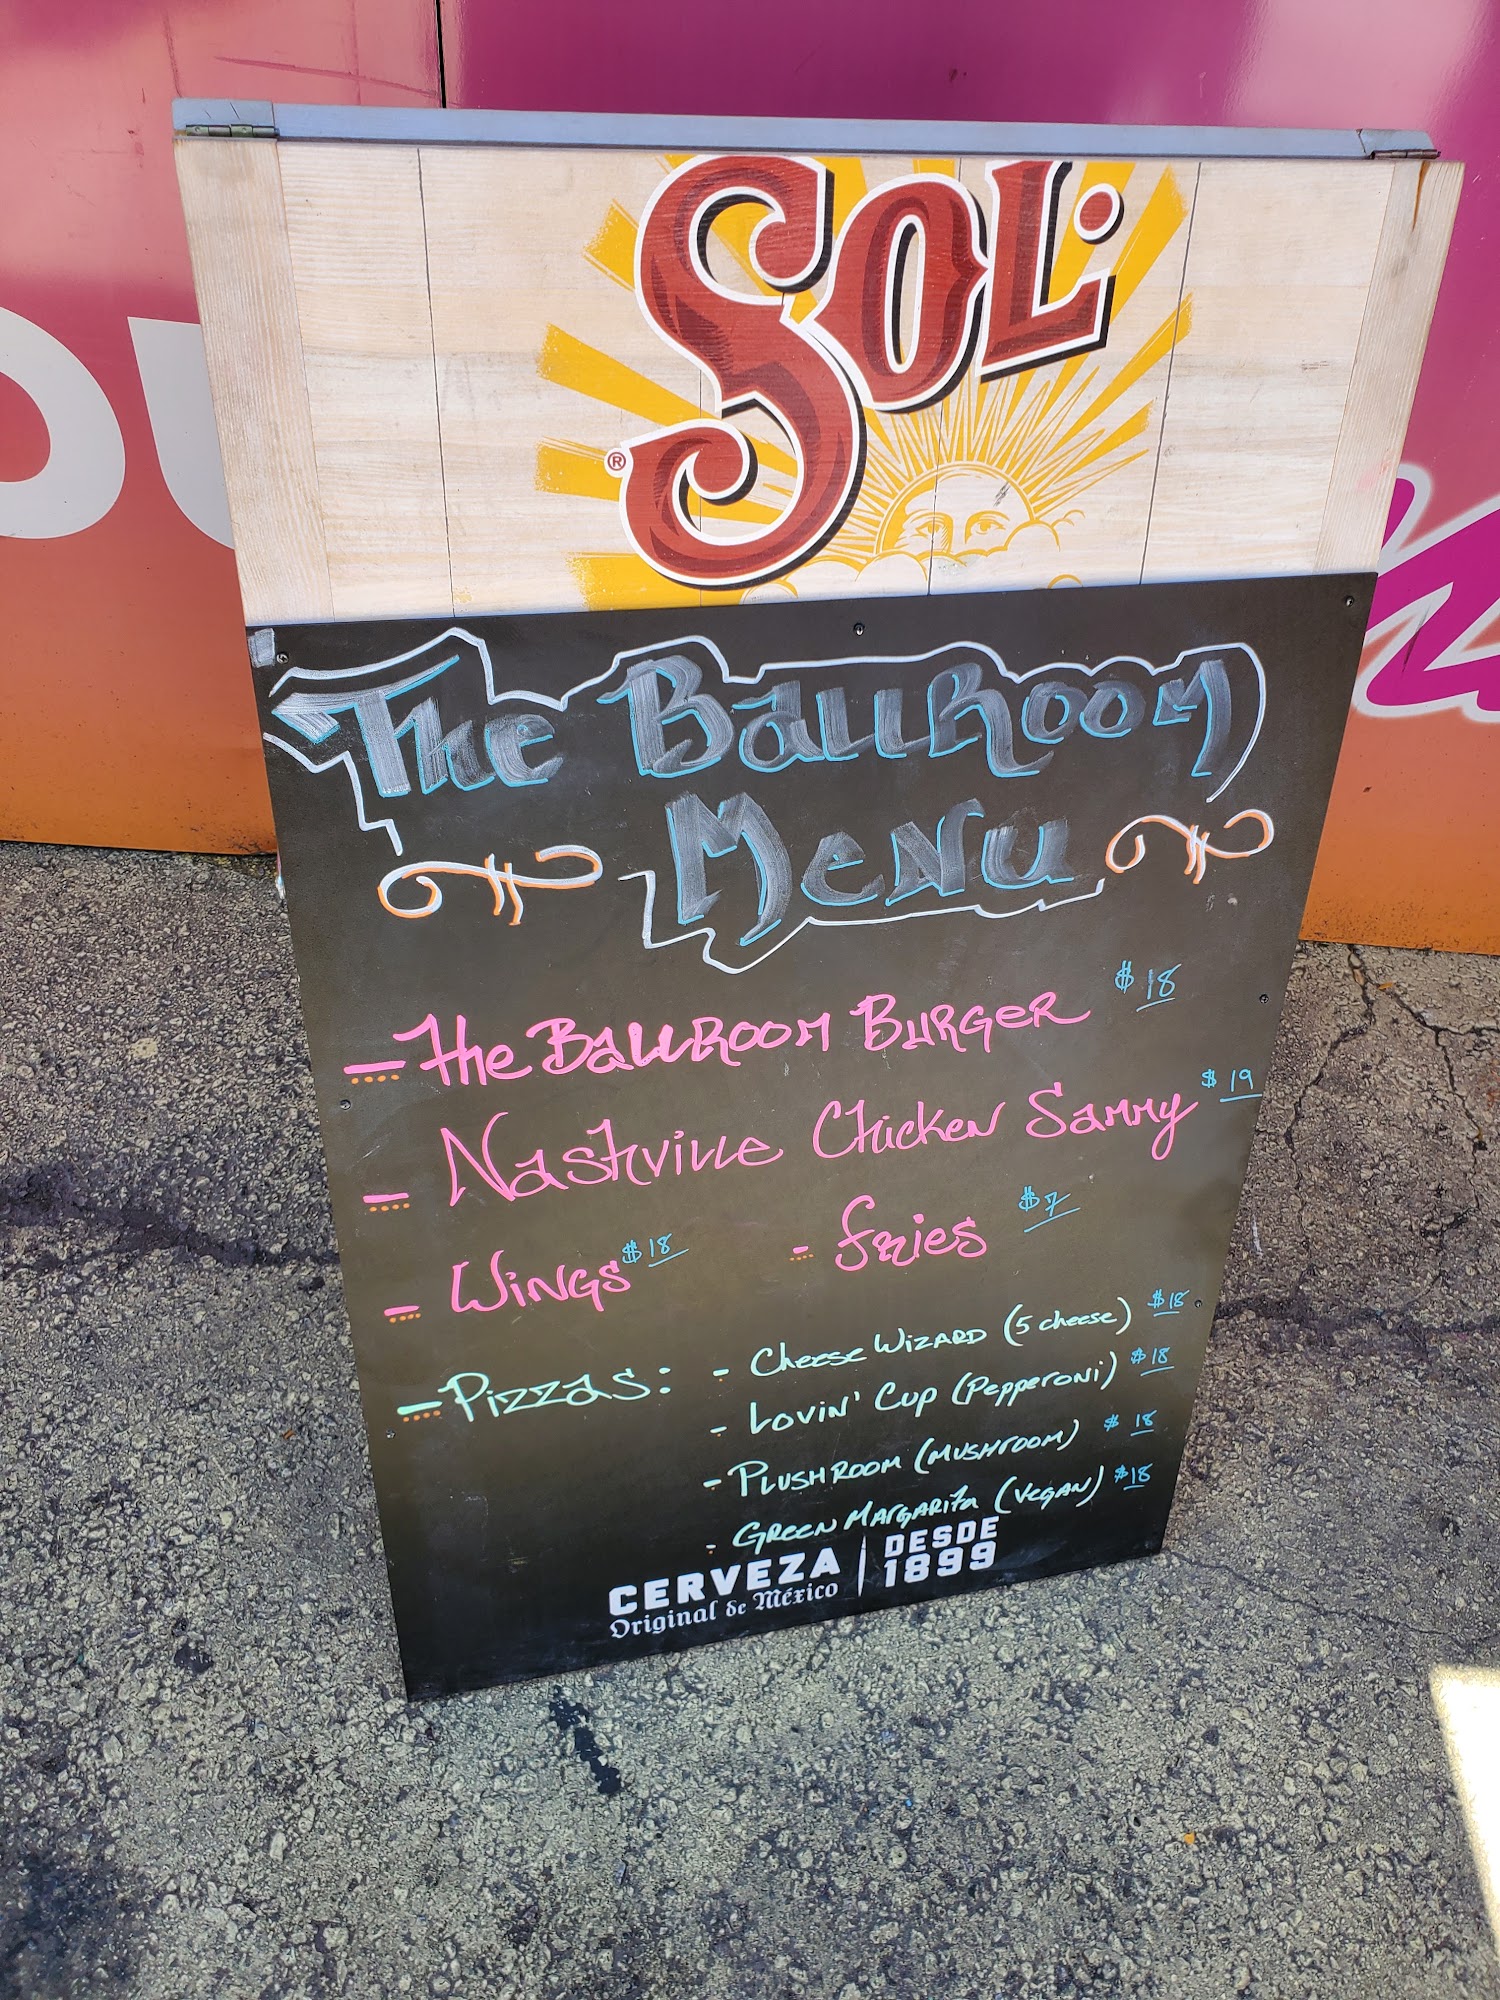 SOL.
®
The Ballroom
Menu
- The Ballroom Burger $18
- Nashville Chicken Sammy $19
- Wings $18 - Fries $7
- Pizzas: - Cheese Wizard (5 cheese) $18
- Lovin' Cup (Pepperoni) $18
- Plushroom (mushroom) $18
- Green Margarita (Vegan) $18
CERVEZA | DESDE
Original de México | 1899